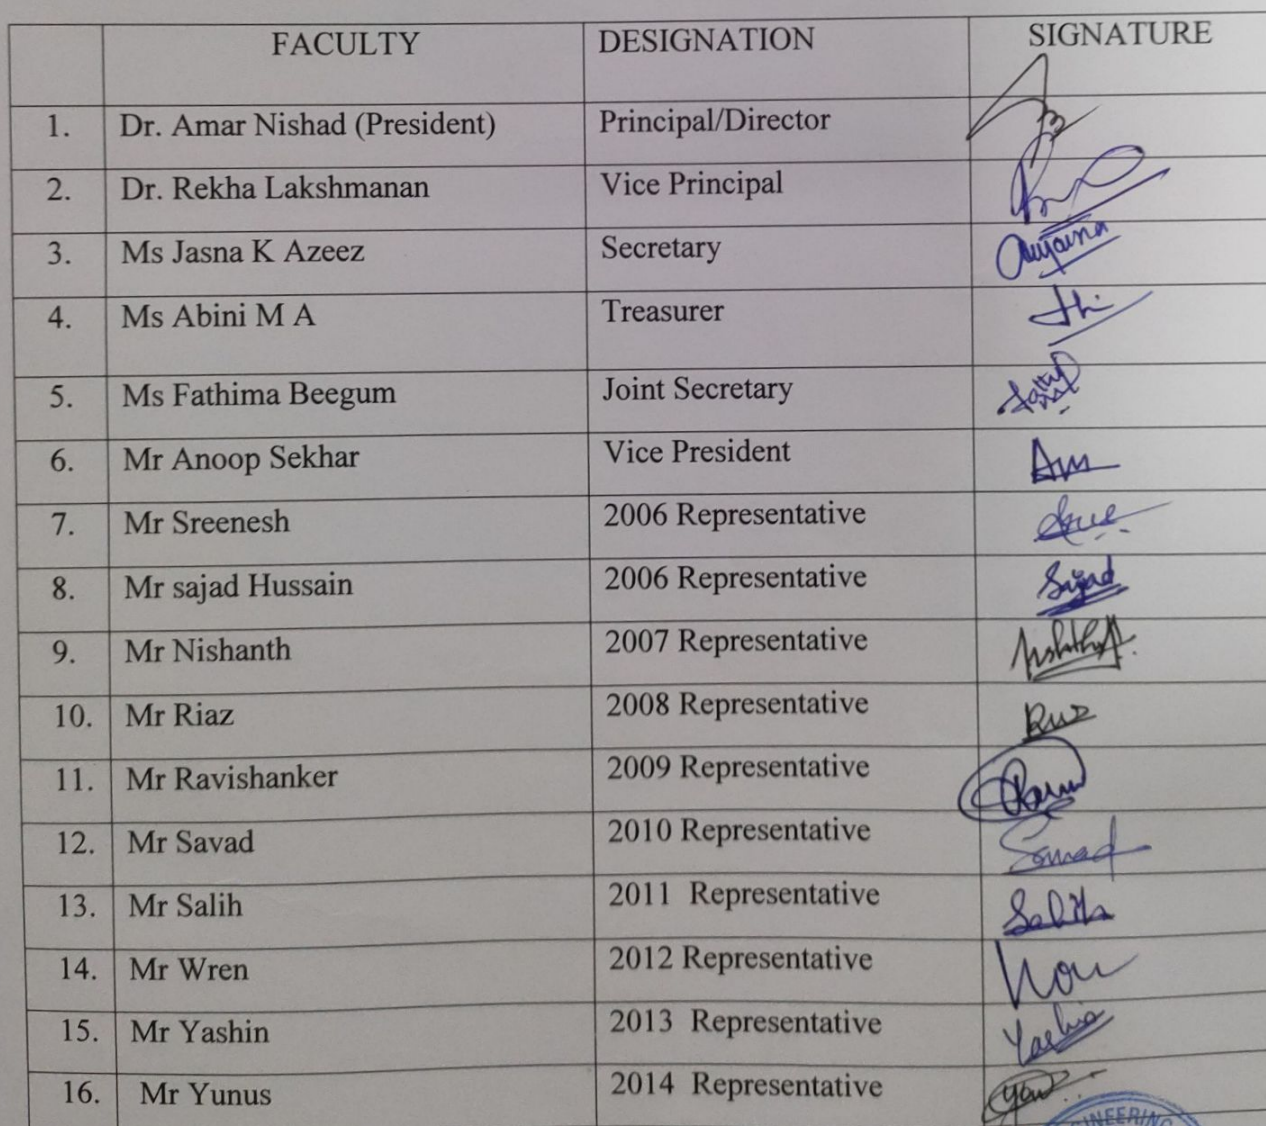 FACULTY DESIGNATION SIGNATURE
1. Dr. Amar Nishad (President) Principal/Director
2. Dr. Rekha Lakshmanan Vice Principal
3. Ms Jasna K Azeez Secretary
4. Ms Abini M A Treasurer
5. Ms Fathima Beegum Joint Secretary
6. Mr Anoop Sekhar Vice President
7. Mr Sreenesh 2006 Representative
8. Mr sajad Hussain 2006 Representative Sajad
9. Mr Nishanth 2007 Representative
10. Mr Riaz 2008 Representative
11. Mr Ravishanker 2009 Representative
12. Mr Savad 2010 Representative
13. Mr Salih 2011 Representative Salih
14. Mr Wren 2012 Representative
15. Mr Yashin 2013 Representative Yashin
16. Mr Yunus 2014 Representative